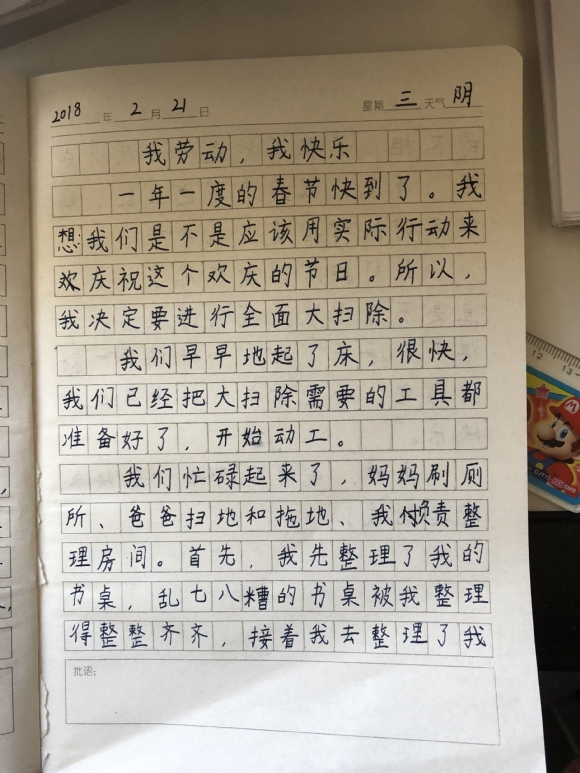 2018年2月21日 星期三 天气阴
我劳动，我快乐
一年一度的春节快到了。我
想我们是不是应该用实际行动来
欢庆祝这个欢庆的节日。所以，
我决定要进行全面大扫除。
我们早早地起了床，很快，
我们已经把大扫除需要的工具都
准备好了，开始动工。
我们忙碌起来了，妈妈刷厕
所、爸爸扫地和拖地、我负责整
理房间。首先，我先整理了我的
书桌，乱七八糟的书桌被我整理
得整整齐齐，接着我去整理了我
批语：
12 13